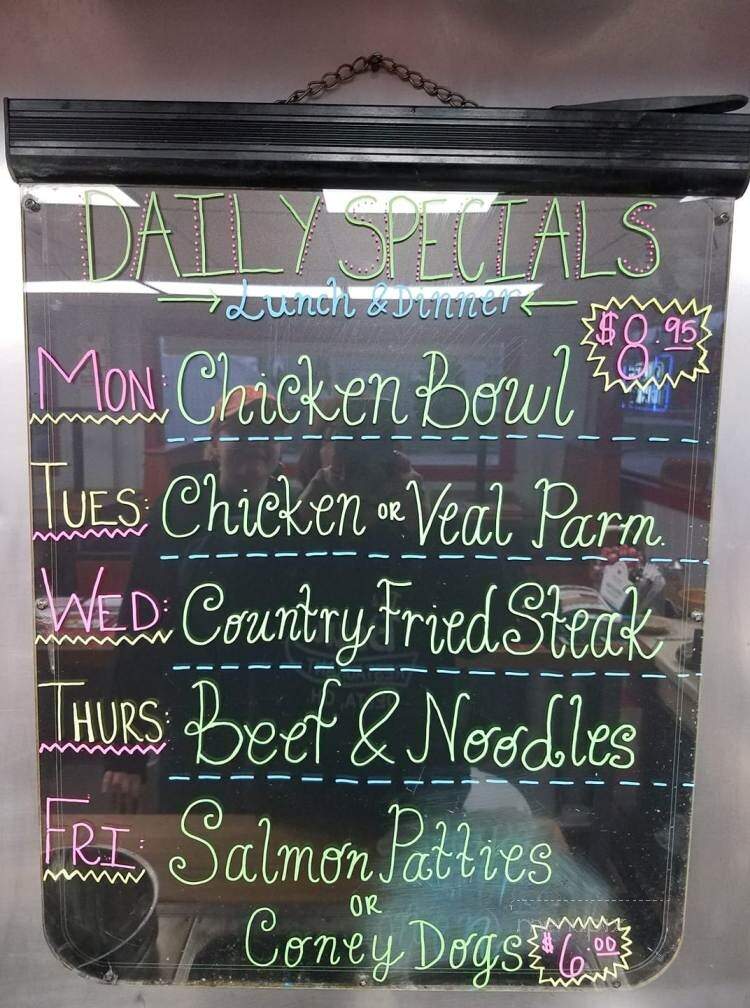 DAILY SPECIALS
Lunch & Dinner
$8.95
MON: Chicken Bowl
TUES: Chicken OR Veal Parm.
WED: Country Fried Steak
THURS: Beef & Noodles
FRI: Salmon Patties
OR
Coney Dogs $6.00